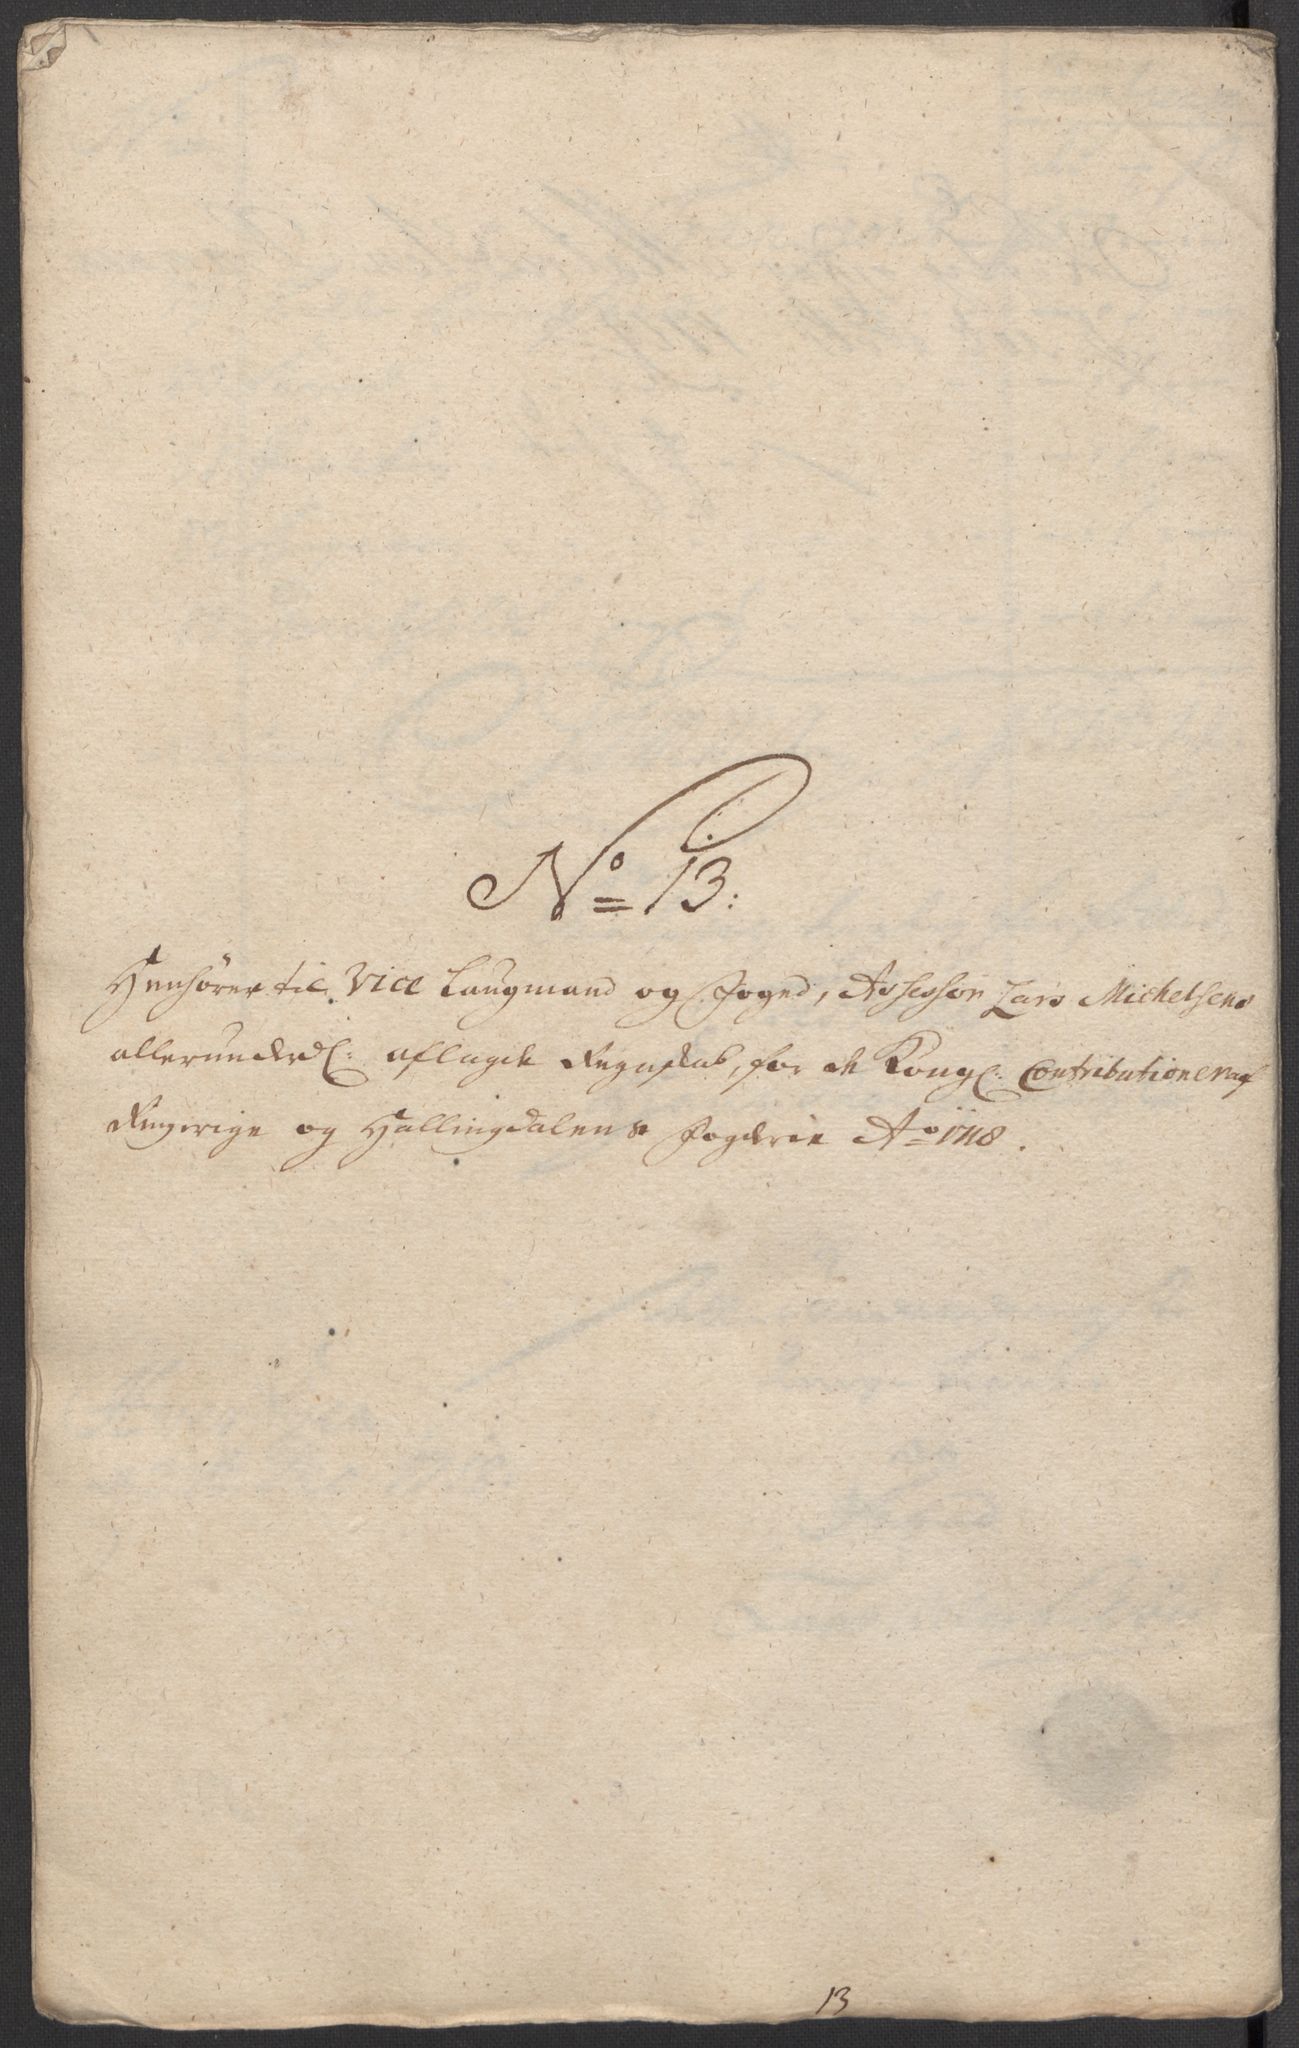 No 13:
Henhörer til Vice Laugmand og Foged, Assessor Lars Michelsens
allerunderd: aflagde Regnskab, for de Kongl: Contributioner af
Ringerige og Hallingdalens Fogderie Ao 1718.
13